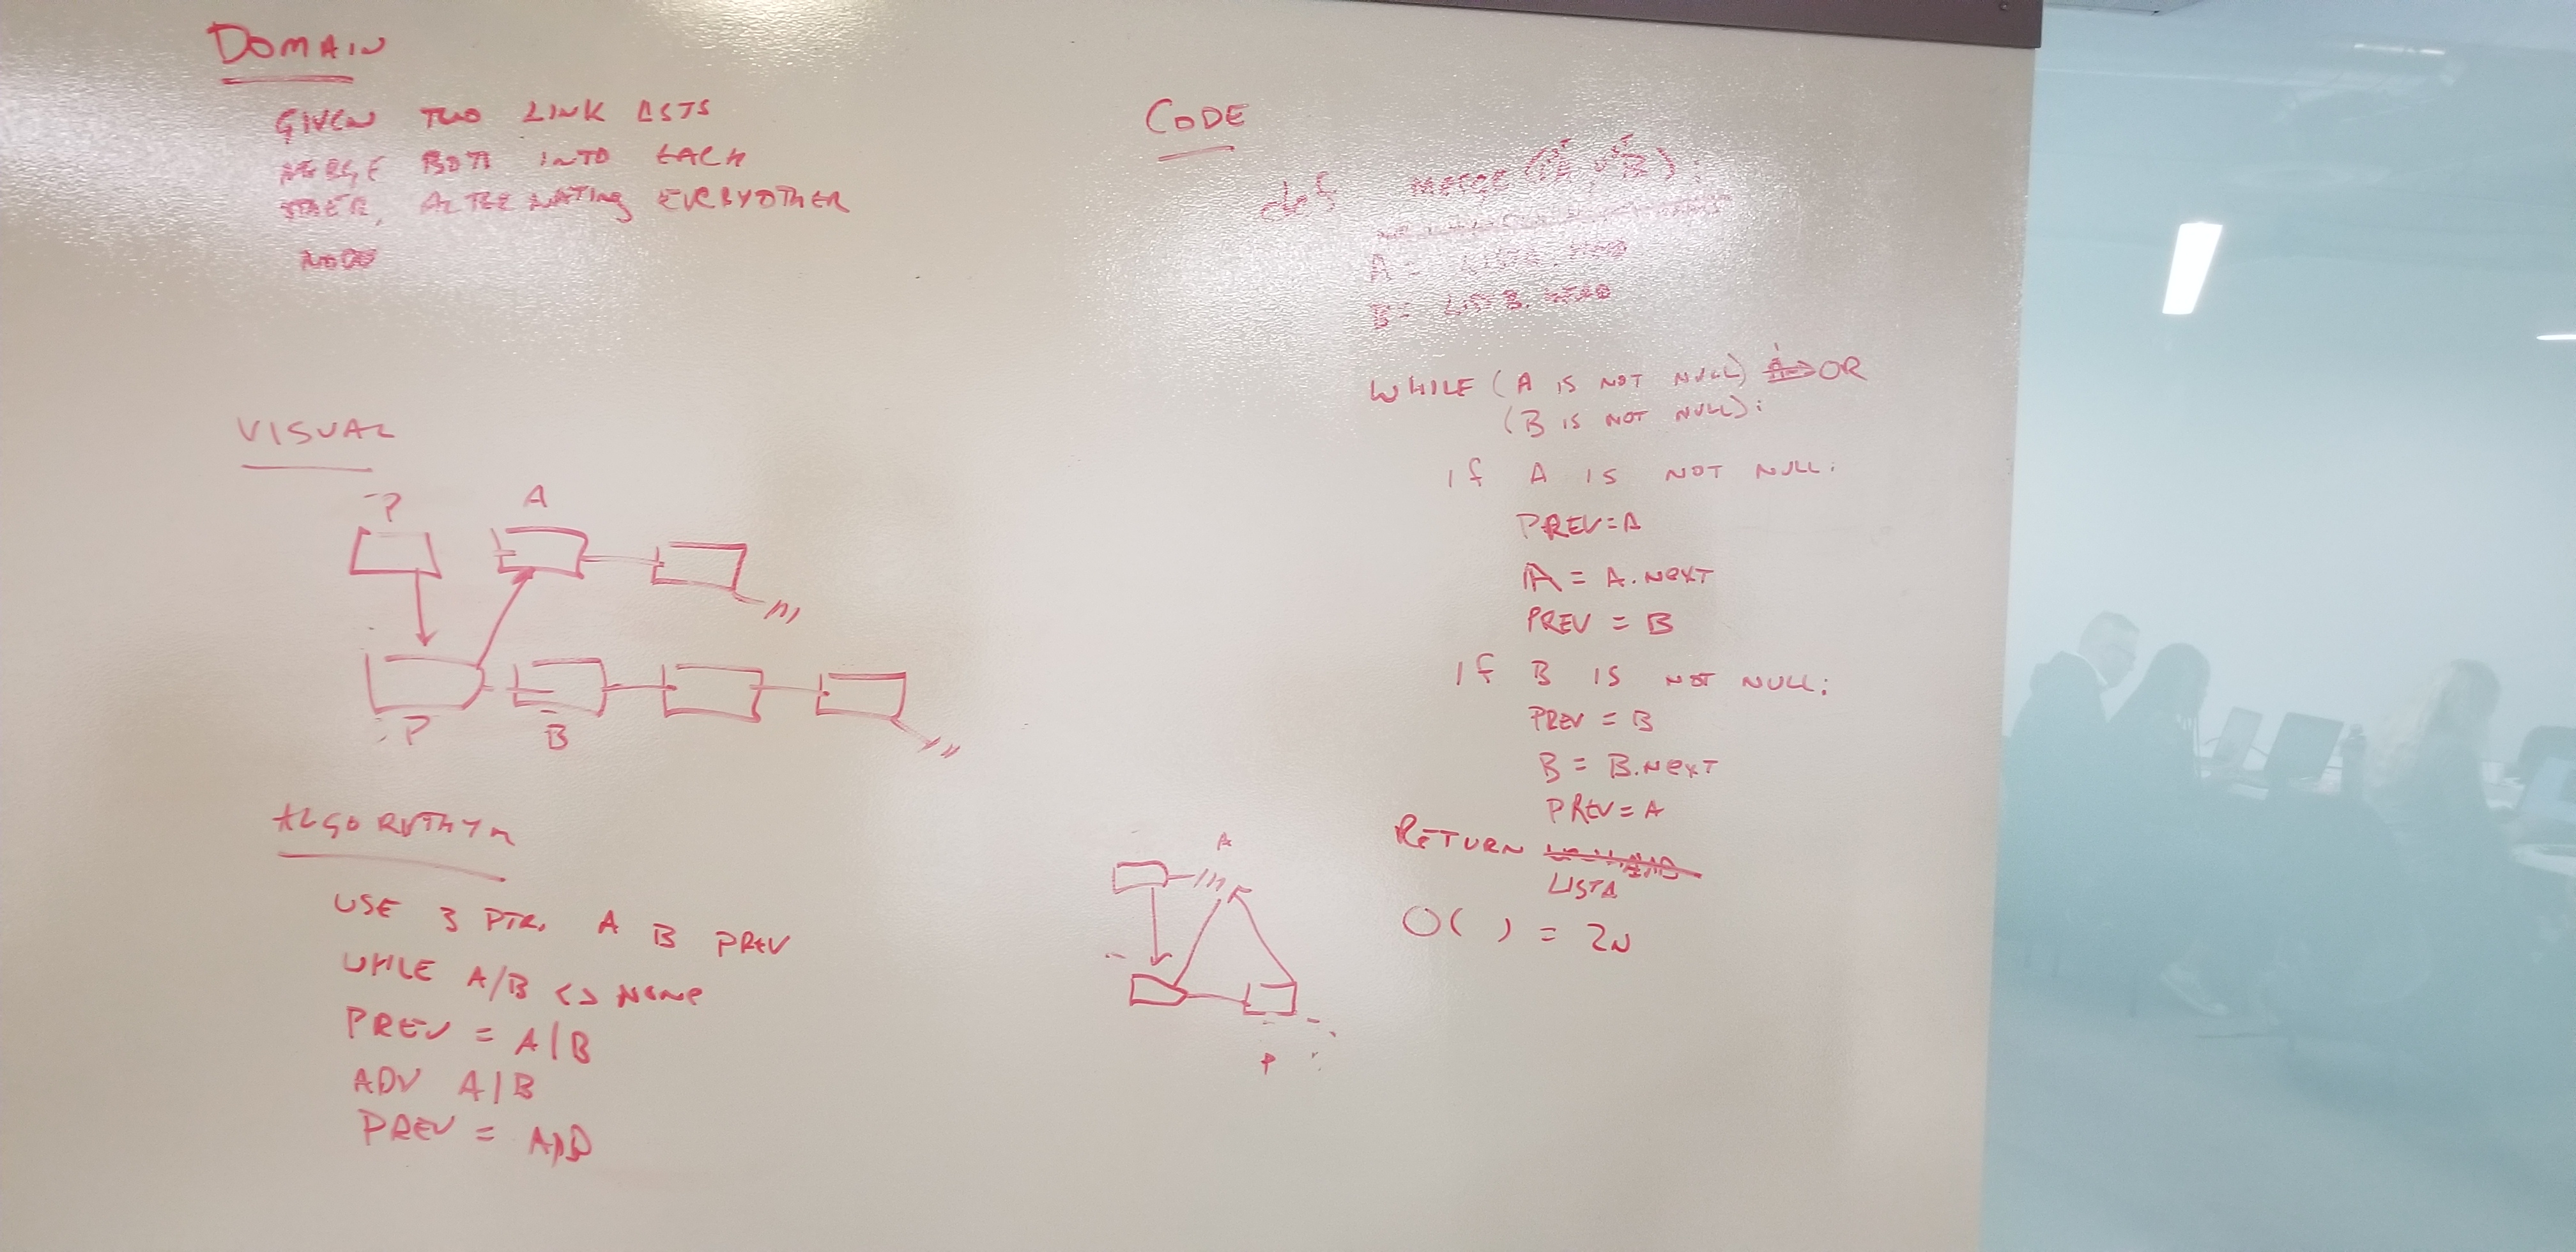 DOMAIN
GIVEN TWO LINK LISTS
MERGE BOTH INTO EACH
OTHER, ALTERNATING EVERYOTHER
NODE
VISUAL
P
A
P
B
ALGORYTHYM
USE 3 PTR, A B PREV
WHILE A/B <> NONE
PREV = A/B
ADV A/B
PREV = A/B
CODE
def merge ( ):
A = LISTA.HEAD
B = LISTB.HEAD
WHILE (A IS NOT NULL) OR
(B IS NOT NULL):
If A IS NOT NULL:
PREV=A
A = A.NEXT
PREV = B
If B IS NOT NULL:
PREV = B
B = B.NEXT
PREV = A
RETURN
LISTA
O( ) = 2N
A
P